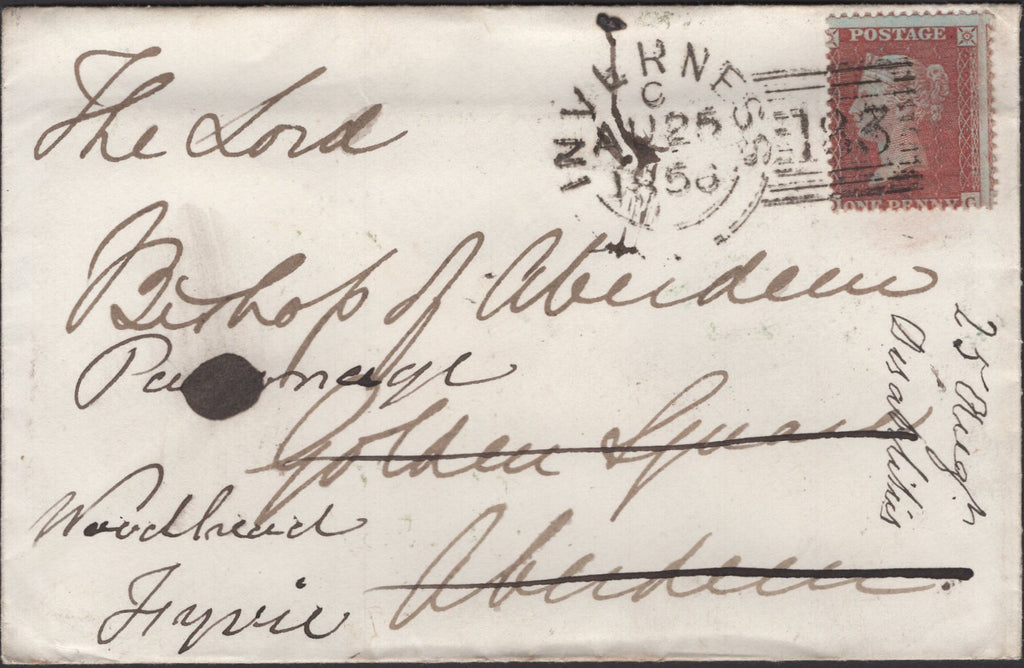 POSTAGE
INVERNESS
C
AU 25
1856
183
ONE PENNY G
The Lord
Bishop of Aberdeen
Parsonage
Golden Square
Woodhead
Aberdeen
Fyvie
25 Augt
Disabilities